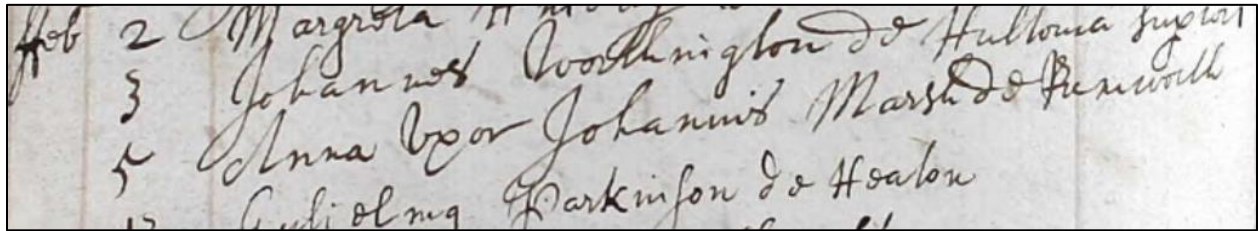 ffeb 2 Margreta
3 Johannes Worthington de Hultonia
5 Anna Vxor Johannis Marsh de Rumworth
Gulielmq Parkinson de Heaton